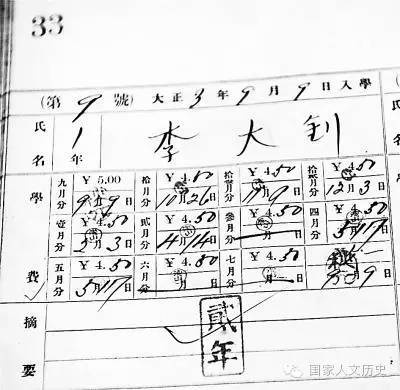 33
(第 9 號) 大正 3 年 9 月 9 日入學
氏名 1年 李大釗
學費
九月分 ￥5.00 9月9日 拾月分 ￥4.50 10月26日 拾壹月分 ￥4.50 月9日 拾貳月分 ￥4.50 12月3日
壹月分 ￥4.50 3月3日 貳月分 ￥4.50 4月14日 參月分 ￥4.50 月日 四月分 ￥4.50 5月17日
五月分 ￥4.50 5月17日 六月分 ￥4.50 月日 七月分 ￥4.50 月日 月9日
摘要 貳年
国家人文历史